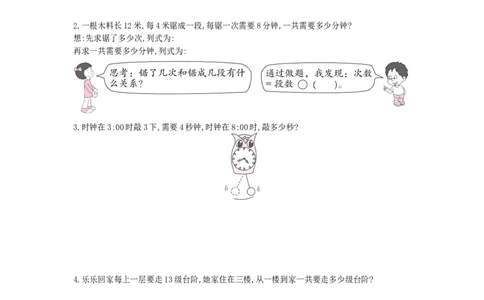 2.一根木料长12米,每4米锯成一段,每锯一次需要8分钟,一共需要多少分钟?
想:先求锯了多少次,列式为:
再求一共需要多少分钟,列式为:
思考：锯了几次和锯成几段有什
么关系?
通过做题，我发现：次数
=段数 ○ (　)。
3.时钟在3:00时敲3下,需要4秒钟,时钟在8:00时,敲多少秒?
4.乐乐回家每上一层要走13级台阶,她家住在三楼,从一楼到家一共要走多少级台阶?